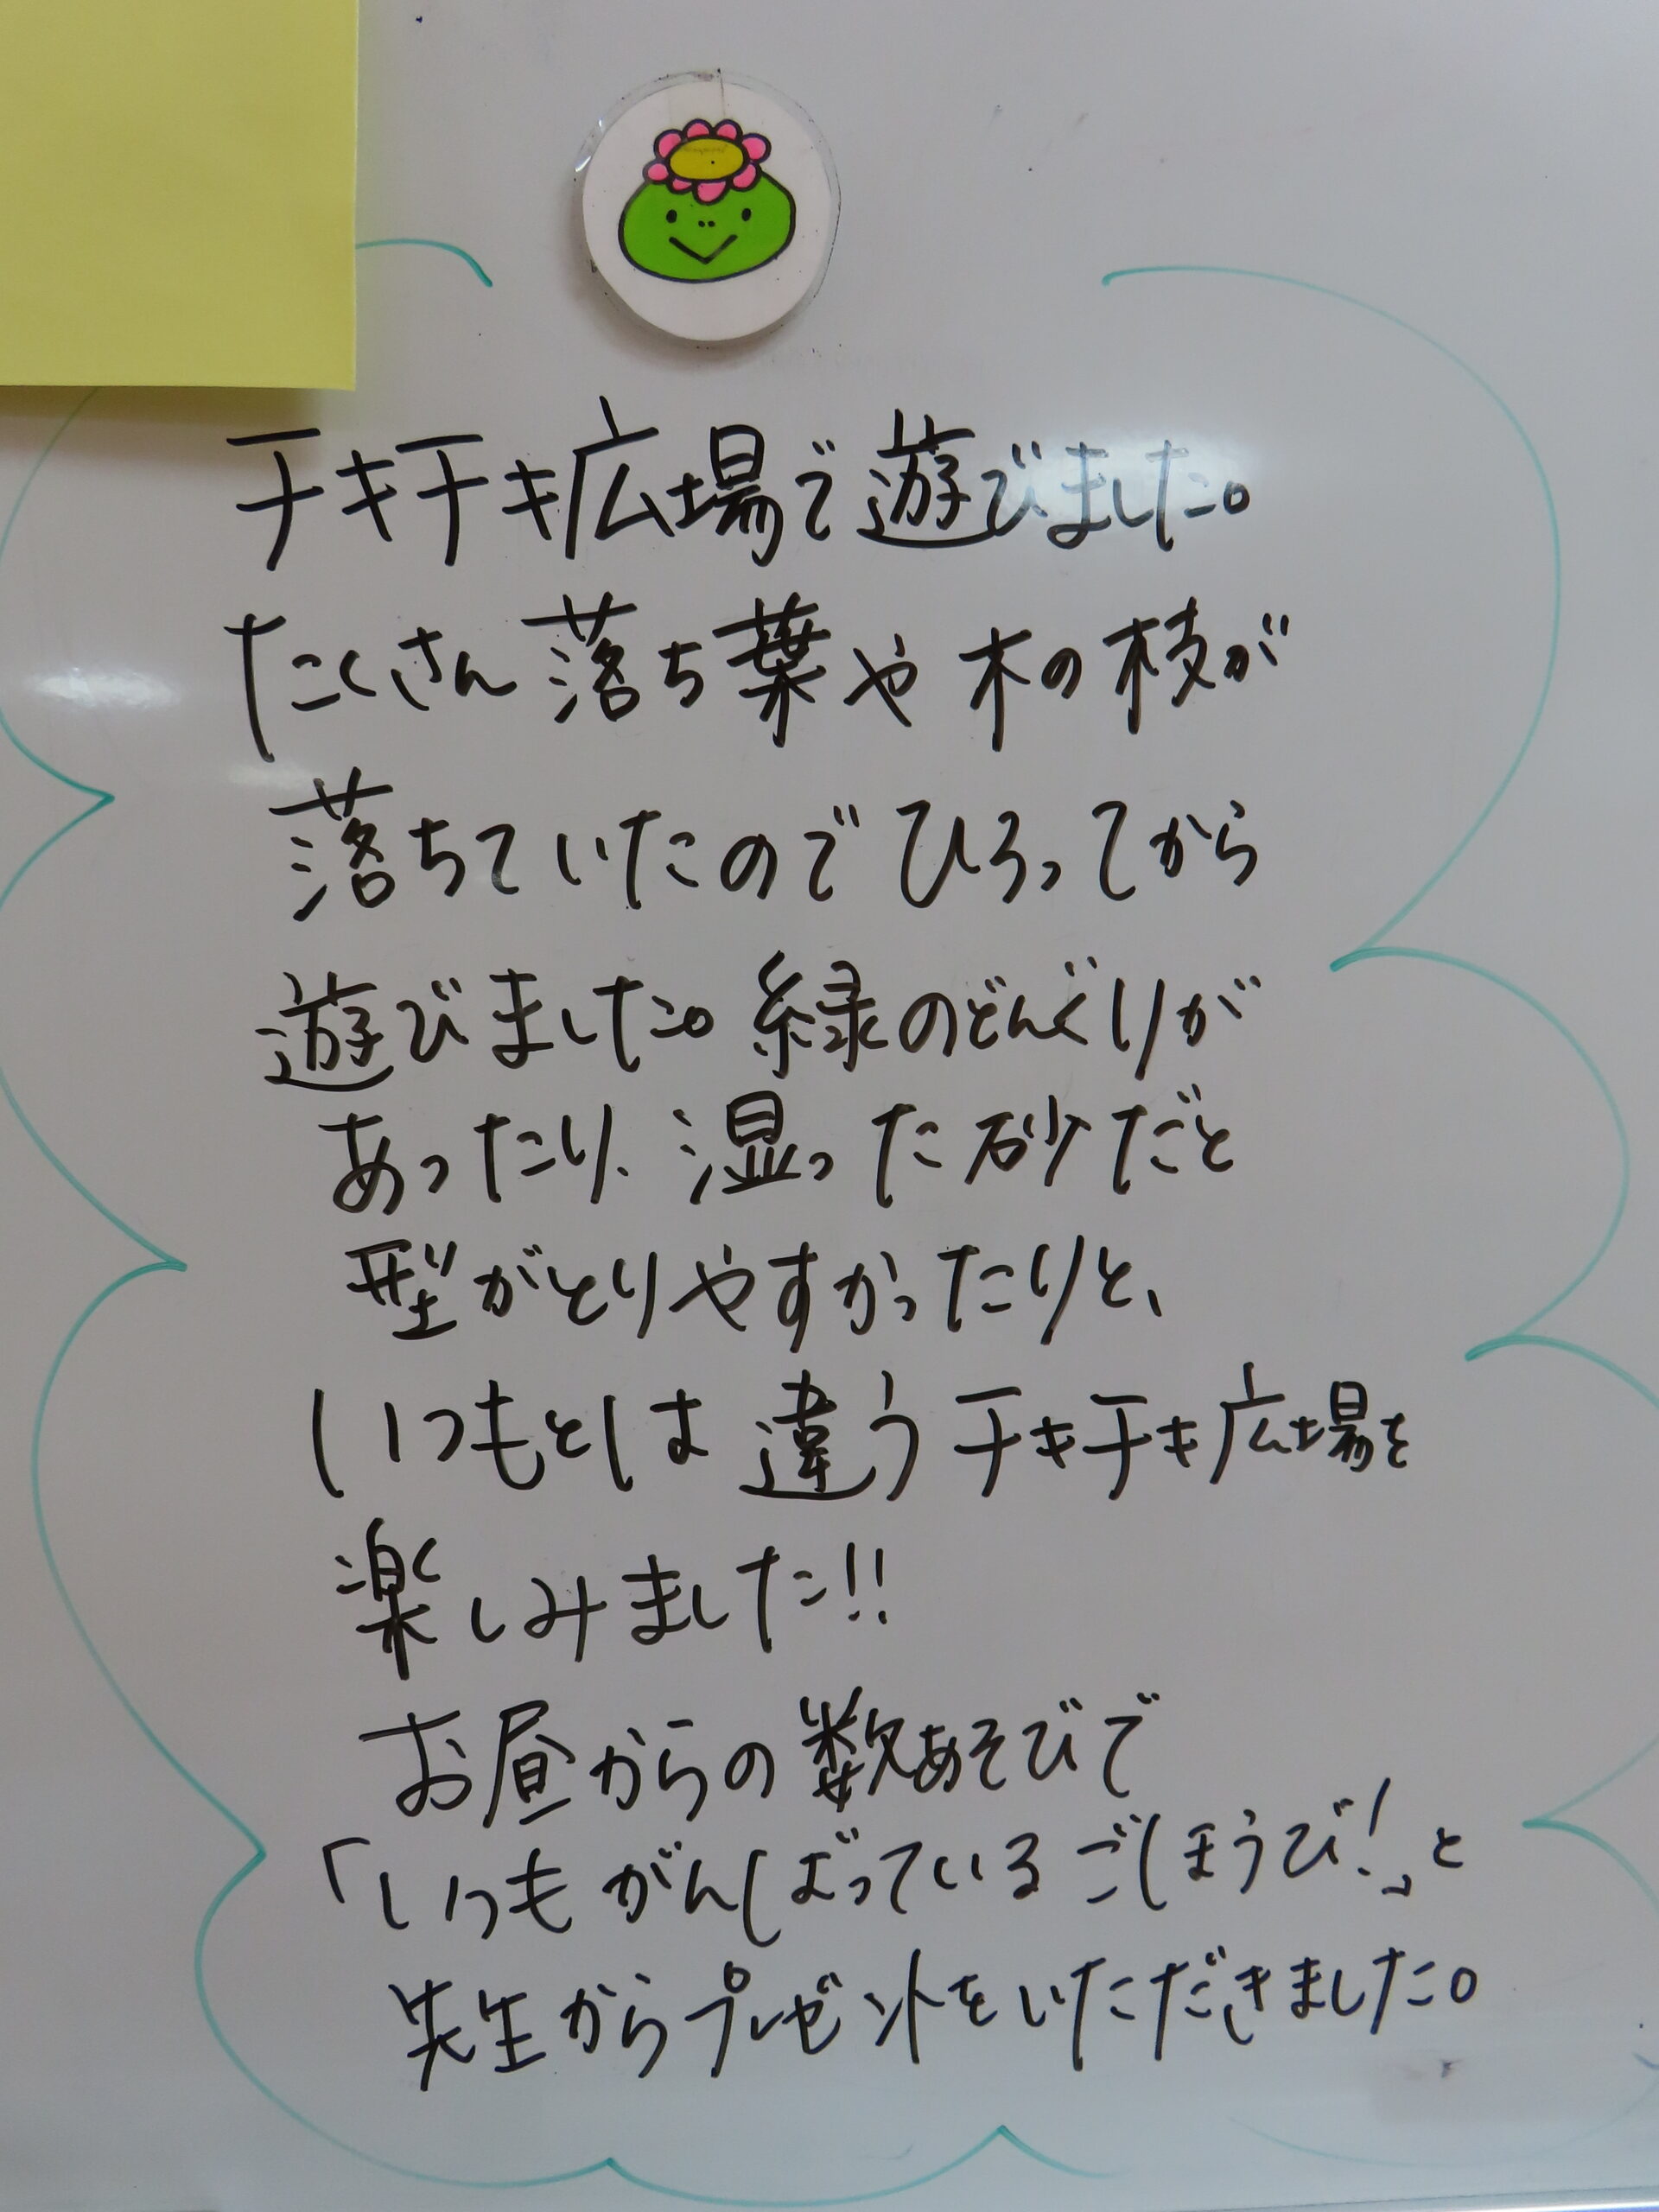 チキチキ広場で遊びました。
たくさん落ち葉や木の枝が
落ちていたのでひろってから
遊びました。緑のどんぐりが
あったり、湿った砂だと
型がとりやすかったりと、
いつもとは違うチキチキ広場を
楽しみました!!
お昼からの数あそびで
「いつもがんばっているごほうび!」と
先生からプレゼントをいただきました。